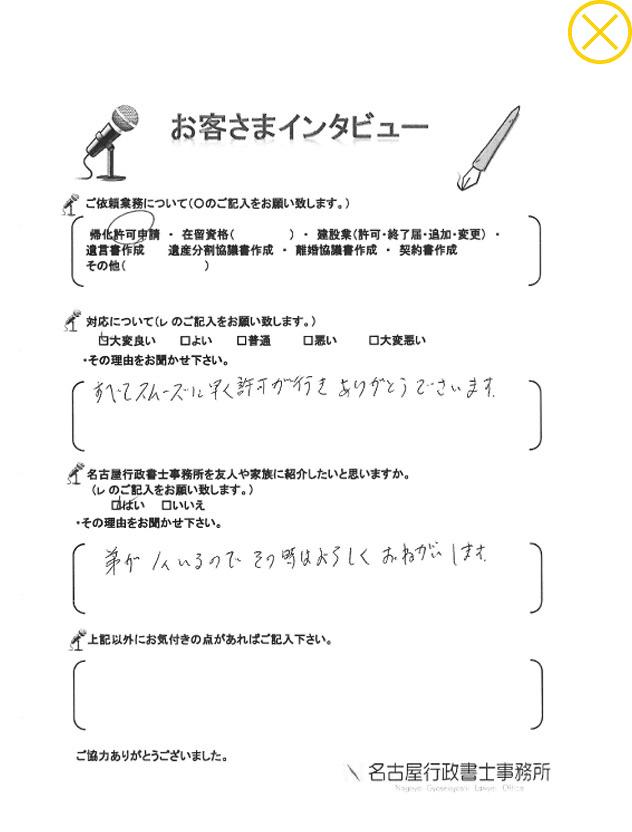 お客さまインタビュー
ご依頼業務について(○のご記入をお願い致します。)
帰化許可申請 ・ 在留資格(　　　　) ・ 建設業(許可・終了届・追加・変更) ・
遺言書作成　遺産分割協議書作成 ・ 離婚協議書作成 ・ 契約書作成
その他(　　　　　　)
対応について(レ のご記入をお願い致します。)
☑大変良い　□よい　□普通　□悪い　□大変悪い
・その理由をお聞かせ下さい。
すべてスムーズに早く許可が行き ありがとうございます。
名古屋行政書士事務所を友人や家族に紹介したいと思いますか。
(レ のご記入をお願い致します。)
☑はい　□いいえ
・その理由をお聞かせ下さい。
弟が 1人いるので その時はよろしく おねがいします。
上記以外にお気付きの点があればご記入下さい。
ご協力ありがとうございました。
名古屋行政書士事務所
Nagoya Gyoseisyoshi Lawyer Office